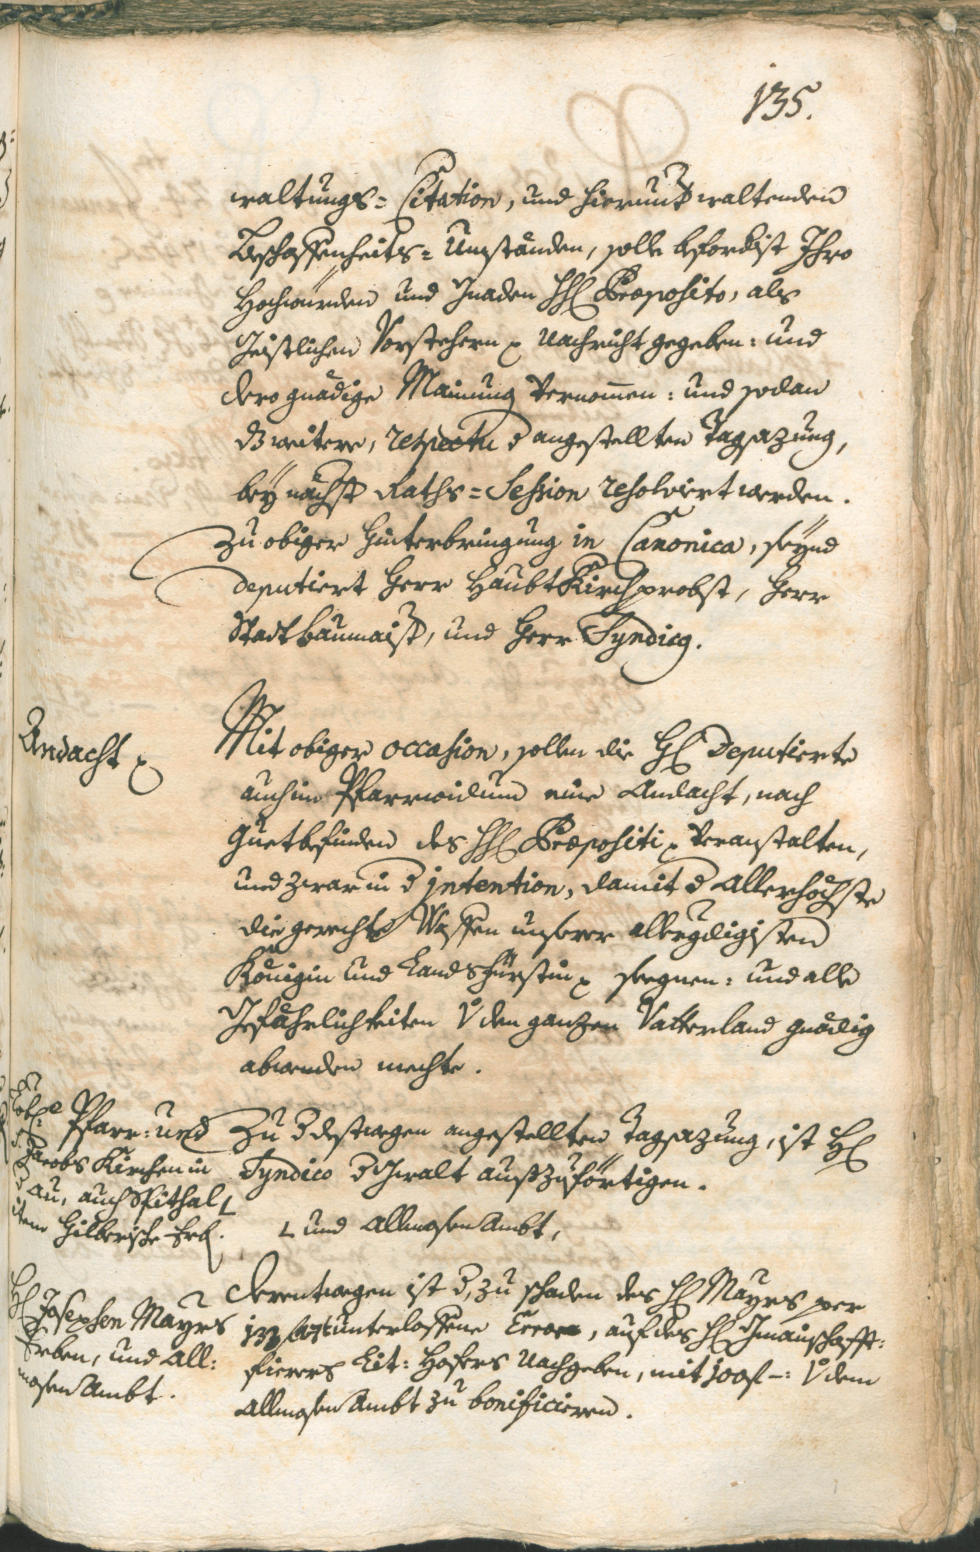 135.
waltungs= Citation, und hierunt waltenden
Beschaffenheits= Umständen, solle befordist Ihro
Hochwürden und Gnaden HH Præposito, als
Geistlichen Vorstehern Nachricht gegeben: und
dero gnädige Mainung vernommen: und sodan
dz weitere, respectu angestellten Tagsazung,
bey nächst Raths= Session resolviert werden.
Zu obiger Hinterbringung in Canonica, seynd
deputiert Herr HaubtKirchprobst, Herr
Stadtbaumaist, und Herr Syndicq.
Andacht
Mit obiger occasion, sollen die HH Deputierte
auch im Pfarrwidum eine Andacht, nach
Guetbefinden des HH Præpositi veranstalten,
und zwar in d intention, damit d Allerhöchste
die gerechte Waffen unserer allergdigisten
Königin und Landsfürstin seegnen: und alle
Gefährlichkeiten v den ganzen Vatterland gnädig
abwenden mechte.
Pfarr: und
Jacobs Kirchen in
d Au, auch Spithal L
item Hilberische Erb.
Zu d destwegen angestellten Tagsazung, ist H
Syndico d Gwalt auszuförtigen.
L und Allmosen Ambt,
H Josephen Mayrs
Erben, und All:
mosen Ambt.
Derentwegen ist d, zu schaden des H Mayrs per
unterlossene Error, auf des H Gmainschafft:
fierers Lit: Hofers Nachgeben, mit 100 f –: v dem
Allmosen Ambt zu bonificieren.